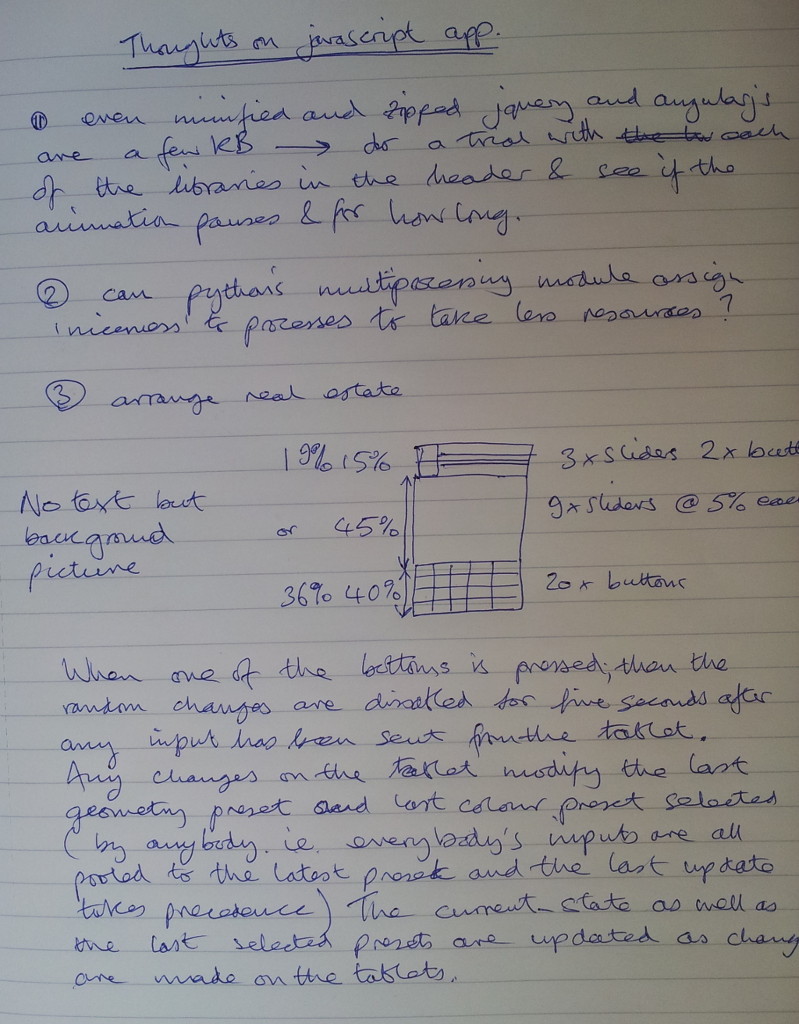 Thoughts on javascript app.
① even minified and zipped jquery and angularjs
are a few KB → do a trial with each
of the libraries in the header & see if the
animation pauses & for how long.
② can python's multiprocessing module assign
'niceness' to processes to take less resources?
③ arrange real estate
19% 15% 3 x sliders 2 x butt
No text but
background
picture
or 45% 9 x sliders @ 5% eac
36% 40% 20 x buttons
When one of the bottoms is pressed, then the
random changes are disabled for five seconds after
any input has been sent from the tablet.
Any changes on the tablet modify the last
geometry preset and last colour preset selected
(by anybody. i.e. everybody's inputs are all
pooled to the latest preset and the last update
takes precedence) The current-state as well as
the last selected presets are updated as chang
are made on the tablets.